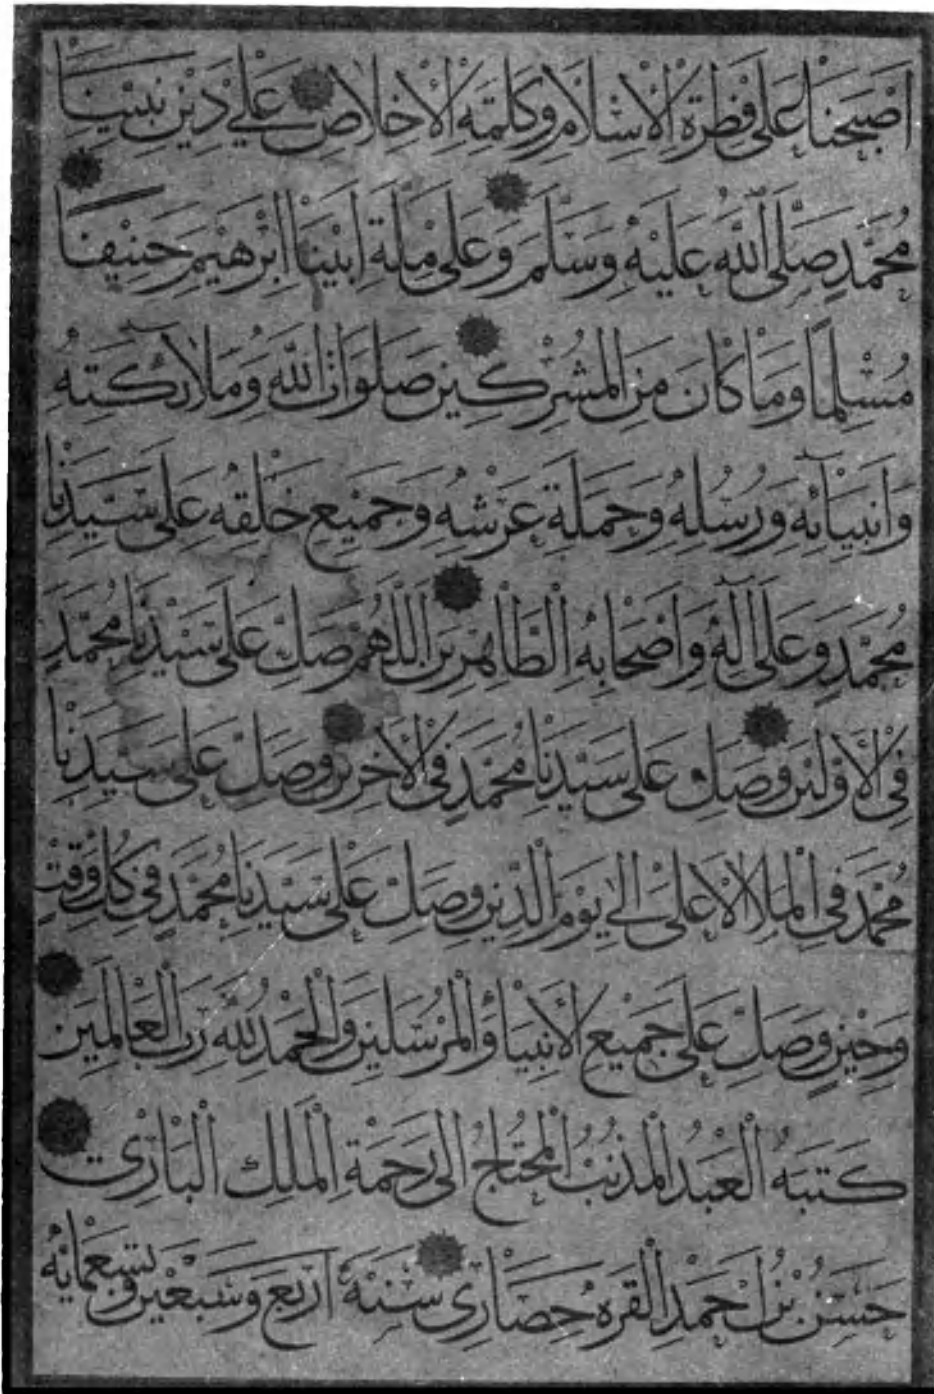 اَصْبَحْنَا عَلٰى فِطْرَةِ الْاِسْلَامِ وَكَلِمَةِ الْاِخْلَاصِ عَلٰى دِيْنِ نَبِيِّنَا
مُحَمَّدٍ صَلَّى اللّٰهُ عَلَيْهِ وَسَلَّمَ وَعَلٰى مِلَّةِ اَبِيْنَا اِبْرٰهِيْمَ حَنِيْفًا
مُسْلِمًا وَمَا كَانَ مِنَ الْمُشْرِكِيْنَ صَلَوَاتُ اللّٰهِ وَمَلَائِكَتِهِ
وَاَنْبِيَائِهِ وَرُسُلِهِ وَحَمَلَةِ عَرْشِهِ وَجَمِيْعِ خَلْقِهِ عَلٰى سَيِّدِنَا
مُحَمَّدٍ وَعَلٰى اٰلِهِ وَاَصْحَابِهِ الطَّاهِرِيْنَ اَللّٰهُمَّ صَلِّ عَلٰى سَيِّدِنَا مُحَمَّدٍ
فِي الْاَوَّلِيْنَ وَصَلِّ عَلٰى سَيِّدِنَا مُحَمَّدٍ فِي الْاٰخِرِيْنَ وَصَلِّ عَلٰى سَيِّدِنَا
مُحَمَّدٍ فِي الْمَلَاِ الْاَعْلٰى اِلٰى يَوْمِ الدِّيْنِ وَصَلِّ عَلٰى سَيِّدِنَا مُحَمَّدٍ فِي كُلِّ وَقْتٍ
وَحِيْنٍ وَصَلِّ عَلٰى جَمِيْعِ الْاَنْبِيَا وَالْمُرْسَلِيْنَ وَالْحَمْدُ لِلّٰهِ رَبِّ الْعَالَمِيْنَ
كَتَبَهُ الْعَبْدُ الْمُذْنِبُ الْمُحْتَاجُ اِلٰى رَحْمَةِ الْمَلِكِ الْبَارِي
حَسَنُ بْنُ اَحْمَدِ الْقَرَه حِصَارِي سَنَةَ اَرْبَعَ وَسَبْعِيْنَ وَتِسْعِمِايَه